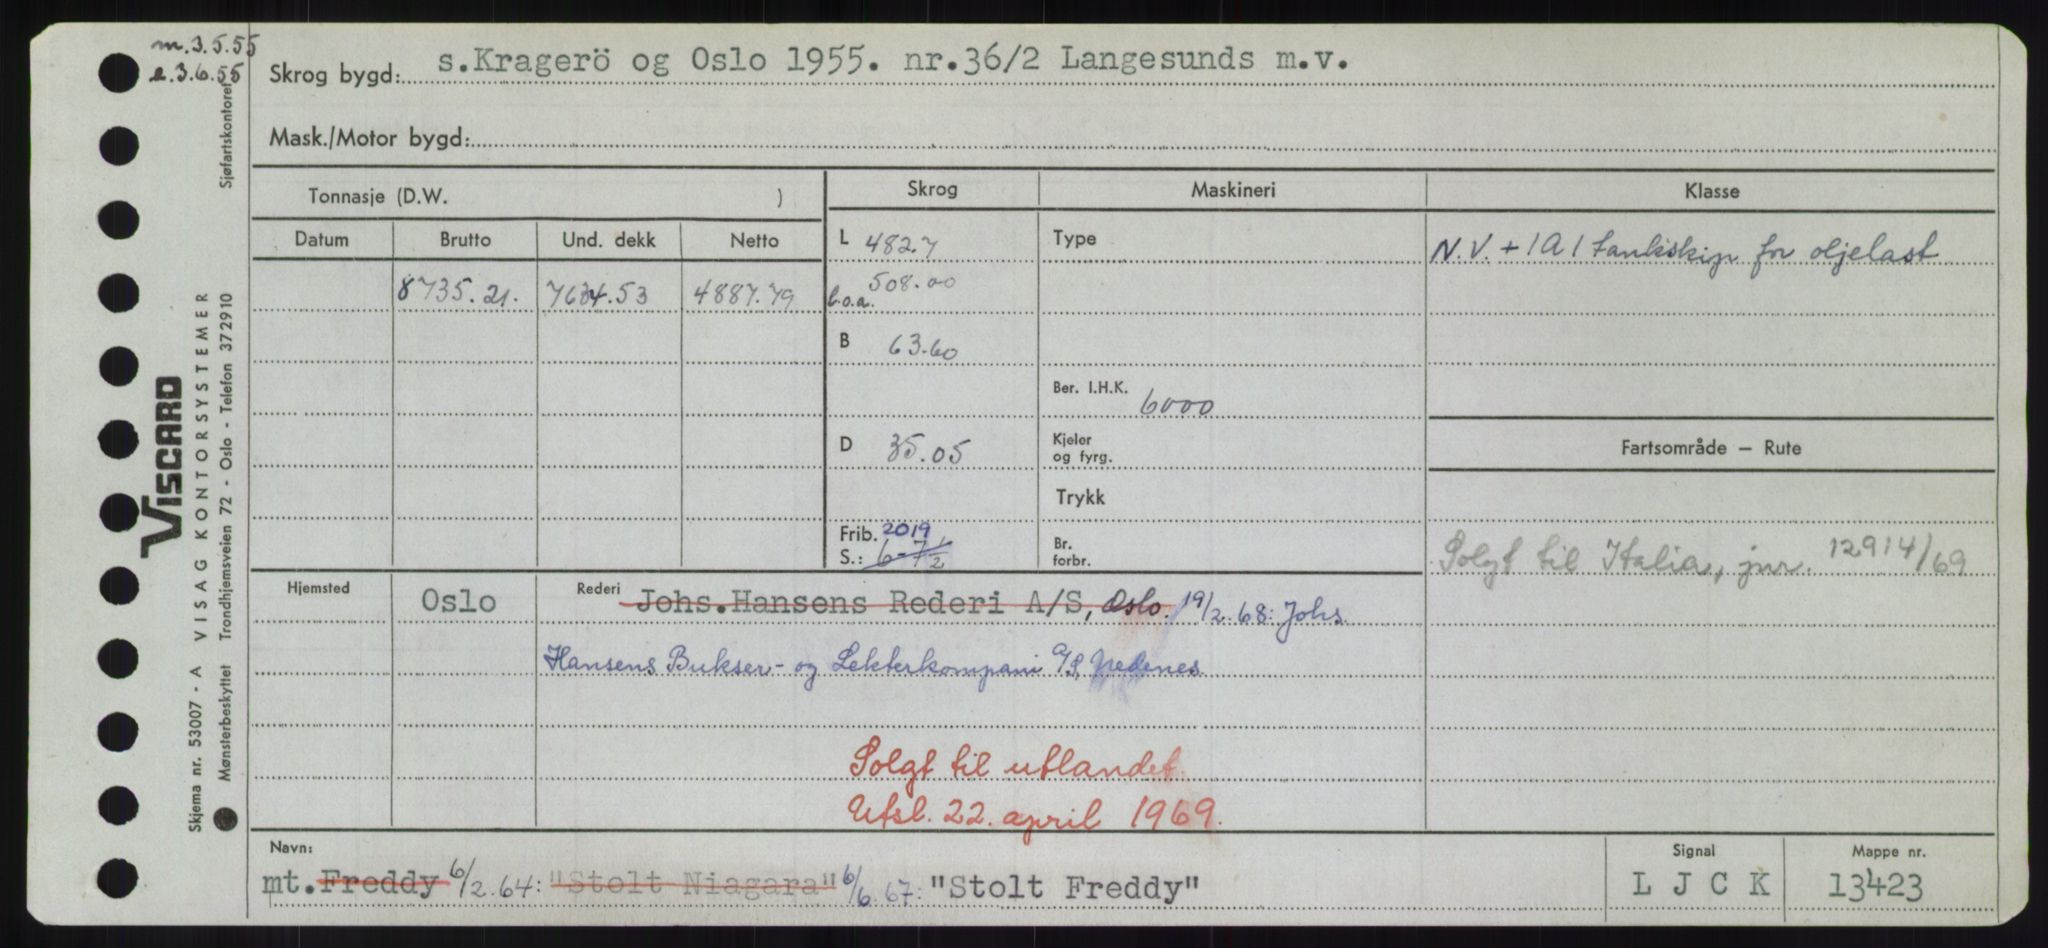 m.3.5.55
e.3.6.55
Skrog bygd: s.Kragerö og Oslo 1955. nr.36/2 Langesunds m.v.
Mask./Motor bygd:
Tonnasje (D.W. )
Skrog
Maskineri
Klasse
Datum Brutto Und. dekk Netto
8735.21. 7634.53 4887.79
L 482.7
l.o.a. 508.00
B 63.60
D 35.05
Frib. 2019
S.: 6-7 1/2
Type
Ber. I.H.K. 6000
Kjeler
og fyrg.
Trykk
Br.
forbr.
N.V. + 1A1 tankskip for oljelast
Fartsområde — Rute
Solgt til Italia, jnr. 12914/69
Hjemsted Oslo
Rederi Johs.Hansens Rederi A/S, Oslo. 19/2.68: Johs.
Hansens Bukser- og Lekterkompani A/S, Nedenes
Solgt til utlandet.
Utsl. 22. april 1969.
Navn:
mt. Freddy 6/2.64: "Stolt Niagara" 6/6.67: "Stolt Freddy"
Signal
L J C K
Mappe nr.
13423
Skjema nr. 53007 - A VISAG KONTORSYSTEMER
VISCARD
Mønsterbeskyttet Trondhjemsveien 72 - Oslo - Telefon 372910
Sjøfartskontoret